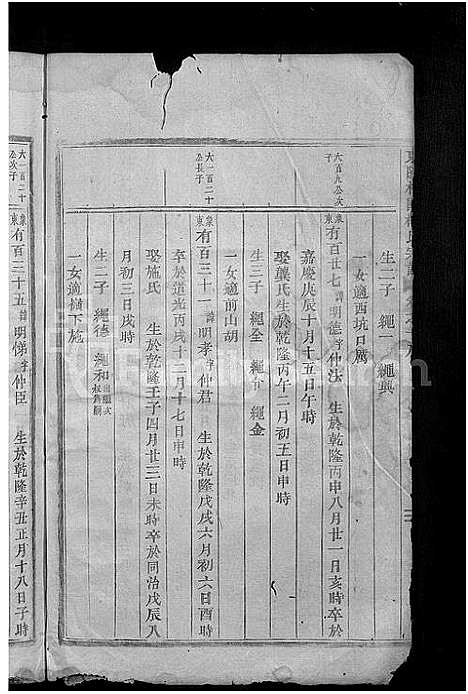 生二子 繩一 繩興
一女適西坑口厲
六百九公次子
象東有百廿七諱明德字仲法 生於乾隆丙申八月廿一日亥時卒於
嘉慶庚辰十月十五日午時
娶龔氏生於乾隆丙午二月初五日申時
生三子 繩全 繩介 繩金
一女適前山胡
六一百二十公長子
象東有百三十一諱明孝字仲君 生於乾隆戊戌六月初六日酉時
卒於道光丙戌十二月十七日申時
娶施氏 生於乾隆壬子四月廿三日未時卒於同治戊辰八
月初三日戌時
生二子 繩德 繩和
一女適樹下施
六一百二十公次子
象東有百二十五諱明悌字仲臣 生於乾隆辛丑正月十八日子時